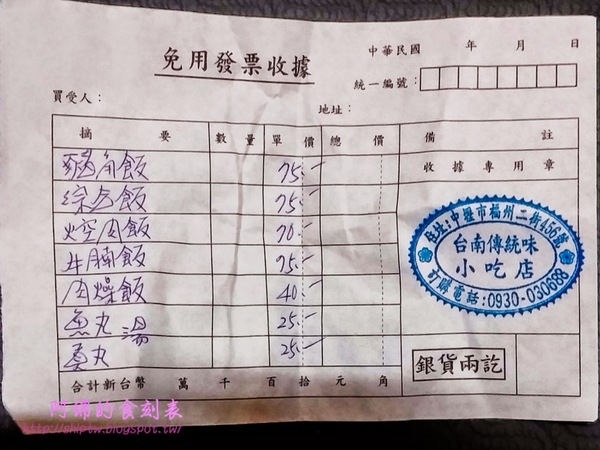 免用發票收據
中華民國 年 月 日
統一編號：
買受人：
地址：
摘要 數量 單價 總價 備註
收據專用章
飯 75.-
綜合飯 75.-
焢肉飯 70.-
牛腩飯 75.-
肉燥飯 40.-
魚丸湯 25.-
丸 25.-
住址:中壢市福州二街456號
台南傳統味
小吃店
訂購電話:0930-030668
銀貨兩訖
合計新台幣 萬 千 百 拾 元 角
阿綿的食刻表
http://shiptw.blogspot.tw/